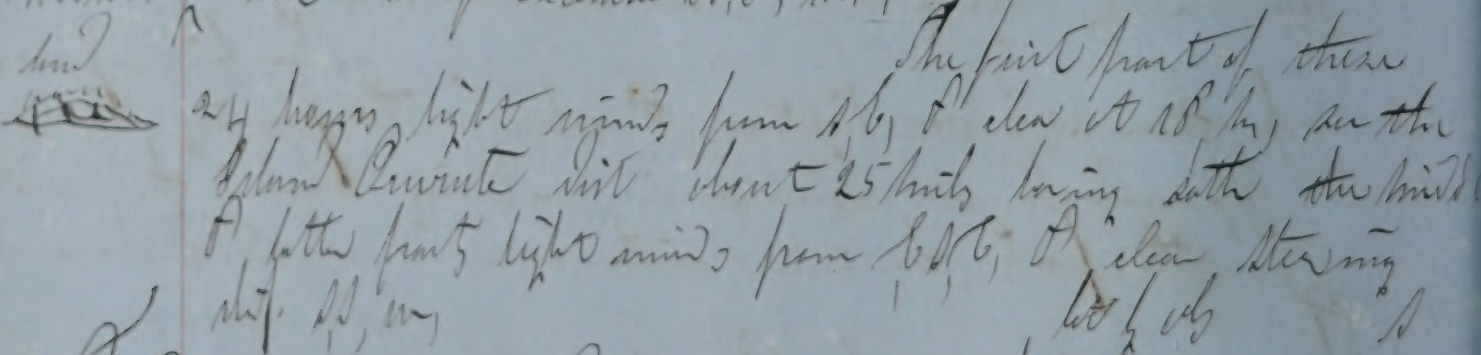 land
The first part of these
24 hours light winds from S, E, & clear at 18 h, see the
Island dist about 25 miles baring the midd
& latter parts light winds from E, S, E, & clear steering
ship S, S, W,
lat by obs S